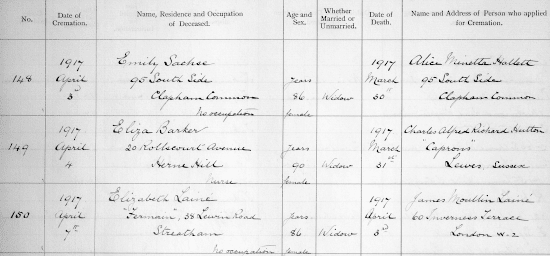 No.
Date of Cremation.
Name, Residence and Occupation of Deceased.
Age and Sex.
Whether Married or Unmarried.
Date of Death.
Name and Address of Person who applied for Cremation.
148
1917 April 3rd
Emily Sachse
95 South Side
Clapham Common
No occupation
years 86 female
Widow
1917 March 30th
Alice Minetta Hallett
95 South Side
Clapham Common
149
1917 April 4
Eliza Barker
20 Kollscourt Avenue
Herne Hill
Nurse
years 90 female
Widow
1917 March 31st
Charles Alfred Richard Hutton
"Caprons"
Lewes, Sussex
150
1917 April 7th
Elizabeth Laine
"Fermain", 38 Leurin Road
Streatham
No occupation
years 86 female
Widow
1917 April 3rd
James Moullin Lainé
60 Inverness Terrace
London W-2